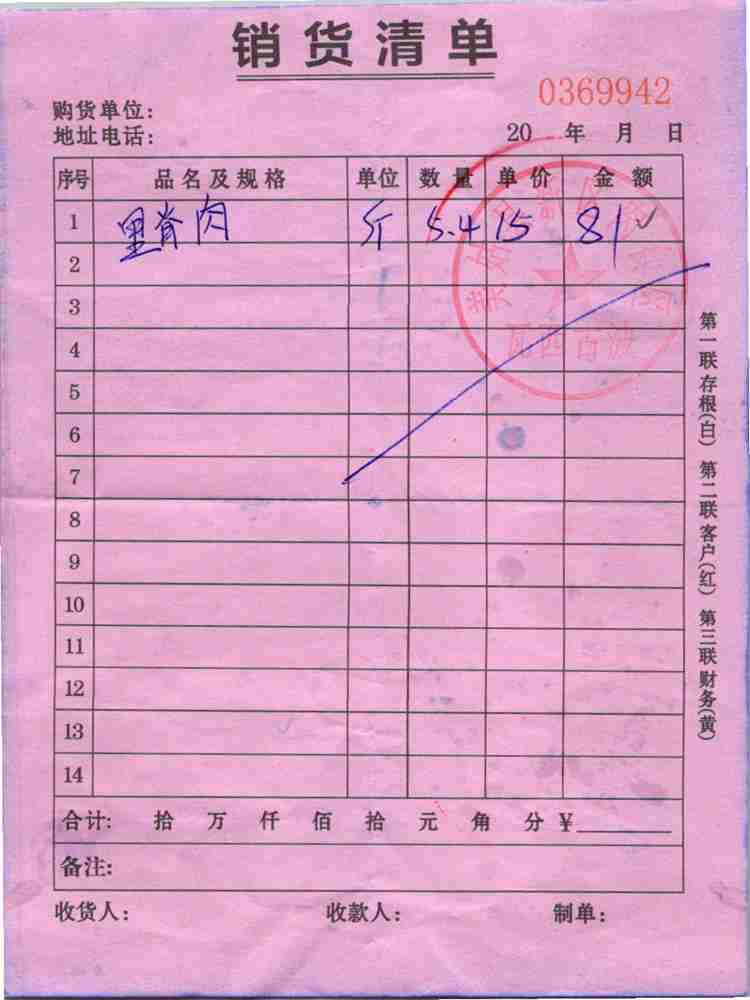 销货清单
0369942
购货单位:
地址电话:
20 年 月 日
序号 品名及规格 单位 数量 单价 金额
1 里脊肉 斤 5.4 15 81
2
3
4
5
6
7
8
9
10
11
12
13
14
合计: 拾 万 仟 佰 拾 元 角 分 ¥
备注:
收货人: 收款人: 制单:
第一联存根(白) 第二联客户(红) 第三联财务(黄)